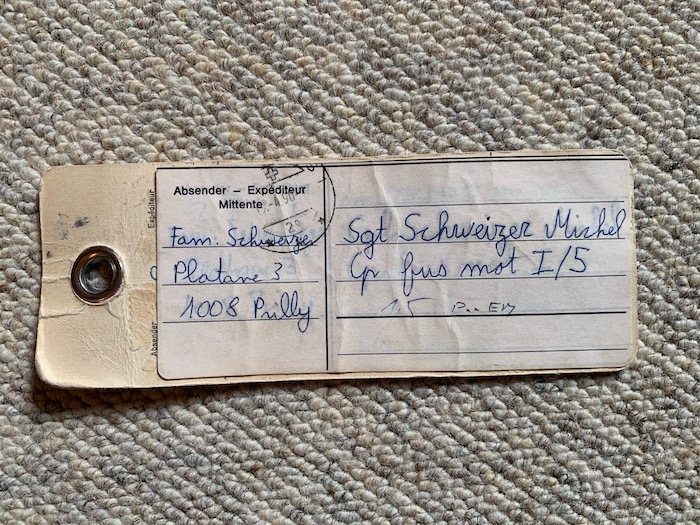 Absender – Expéditeur
Mittente
Expéditeur
Absender
Fam. Schweizer
Platane 3
1008 Prilly
Sgt Schweizer Michel
Cp fus mot I/5